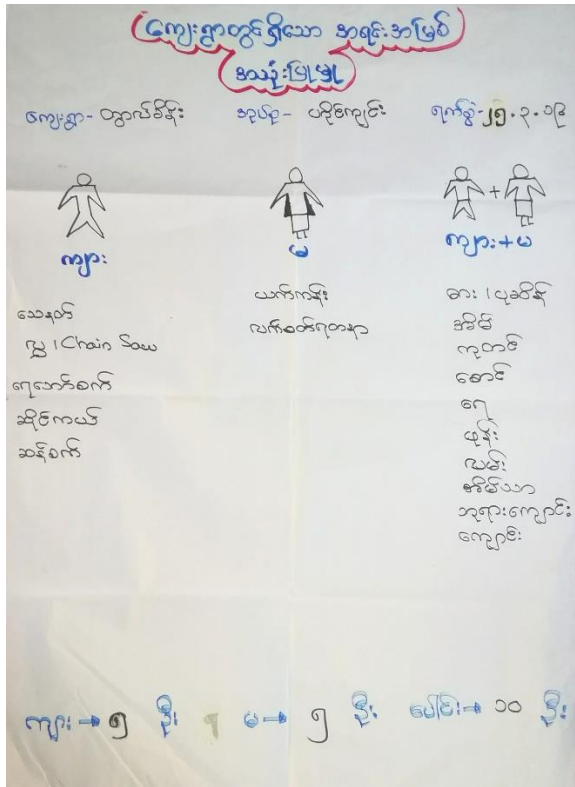 ကျေးရွာတွင်ရှိသော အရင်းအမြစ်
အသုံးပြုမှု
ကျေးရွာ - တွာလ်ခိန်း အုပ်စု - ပကိုင်ကျင်း ရက်စွဲ - ၂၅.၃.၁၉
+
ကျား မ ကျား+မ
သေနတ်
လွှ / Chain Saw
ရေဒေါက်စက်
ဆိုင်ကယ်
ဆန်စက်
ယက်ကန်း
လက်ဝတ်ရတနာ
ဓား / ပုဆိန်
အိမ်
ကုတင်
စောင်
ရေ
ဖုန်း
လမ်း
အိမ်သာ
ဘုရားကျောင်း
ကျောင်း
ကျား → ၅ ဦး မ → ၅ ဦး ပေါင်း → ၁၀ ဦး